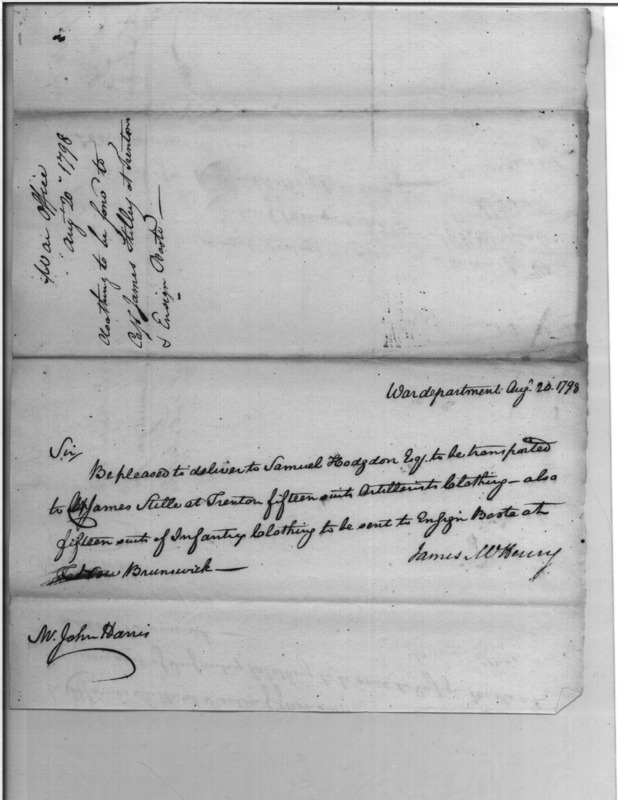 War Office
Augt 20 1798
Cloathing to be forwd to
Capt James Stilley at Trenton
& Ensign Boote —
War department Augt. 20. 1798
Sir,
Be pleased to deliver to Samuel Hodgdon Esq. to be transported
to Capt James Stille at Trenton fifteen suits Artillerists Clothing — also
fifteen suits of Infantry Clothing to be sent to Ensign Boote at
New Brunswick —
James McHenry
Mr. John Harris